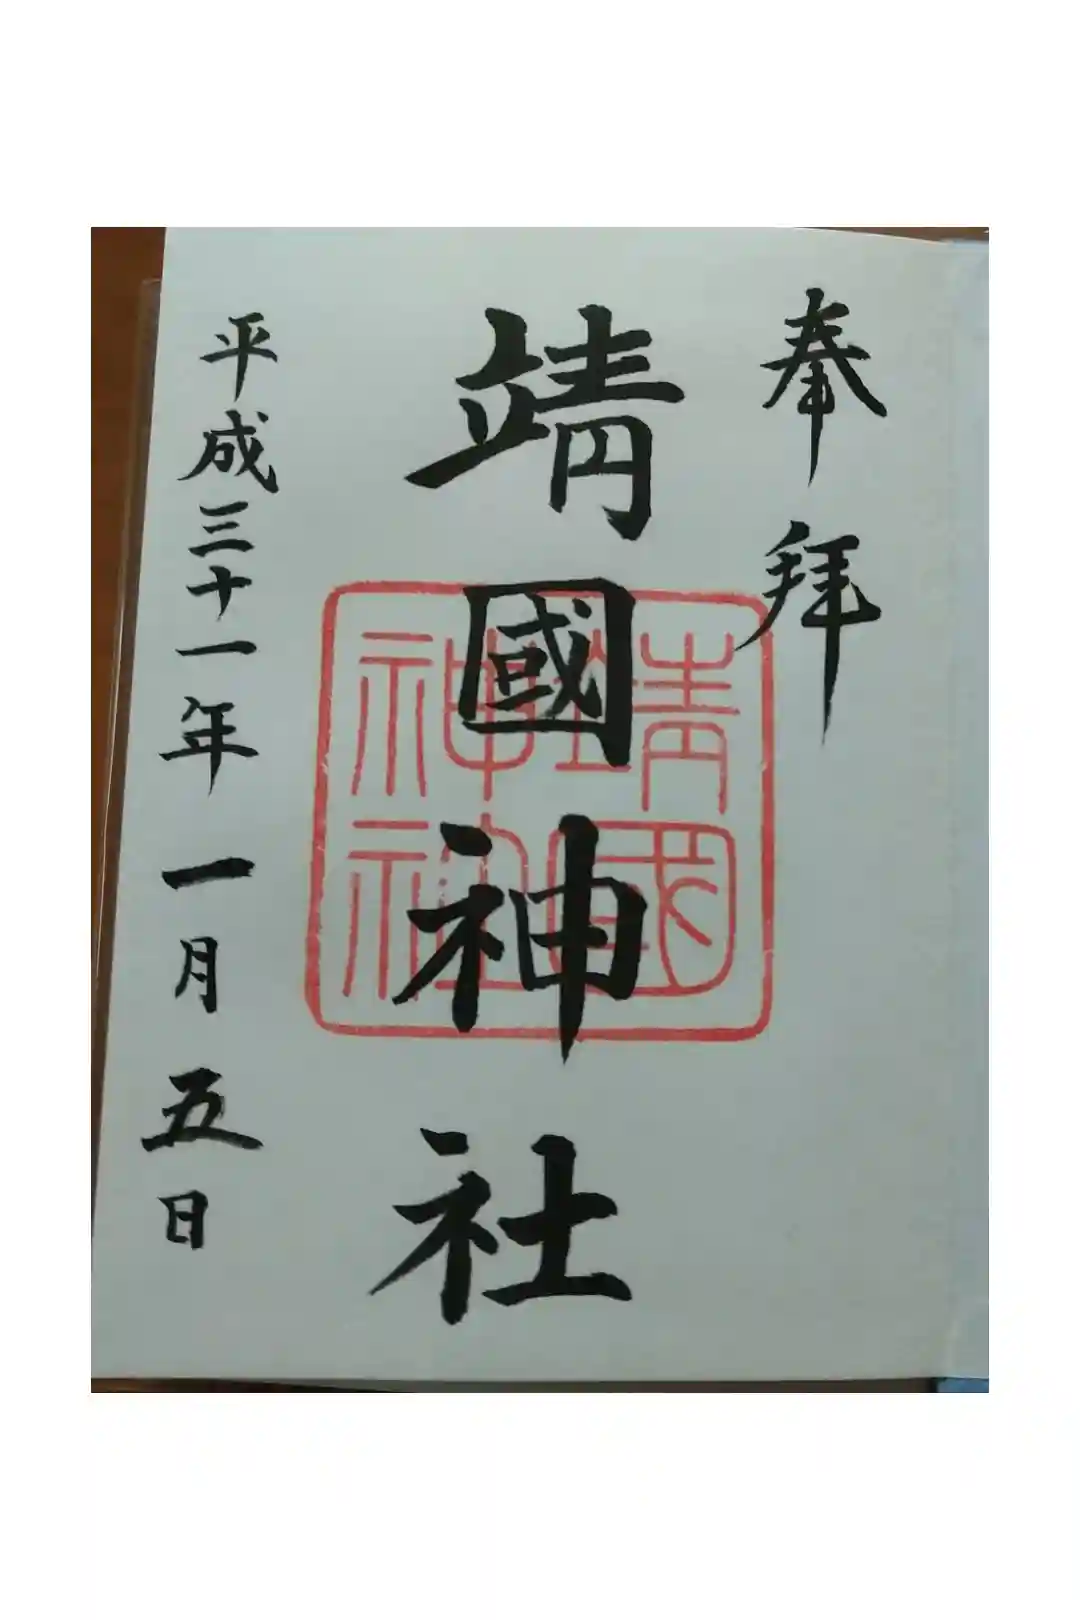 奉拝
靖國神社
靖國神社
平成三十一年一月五日